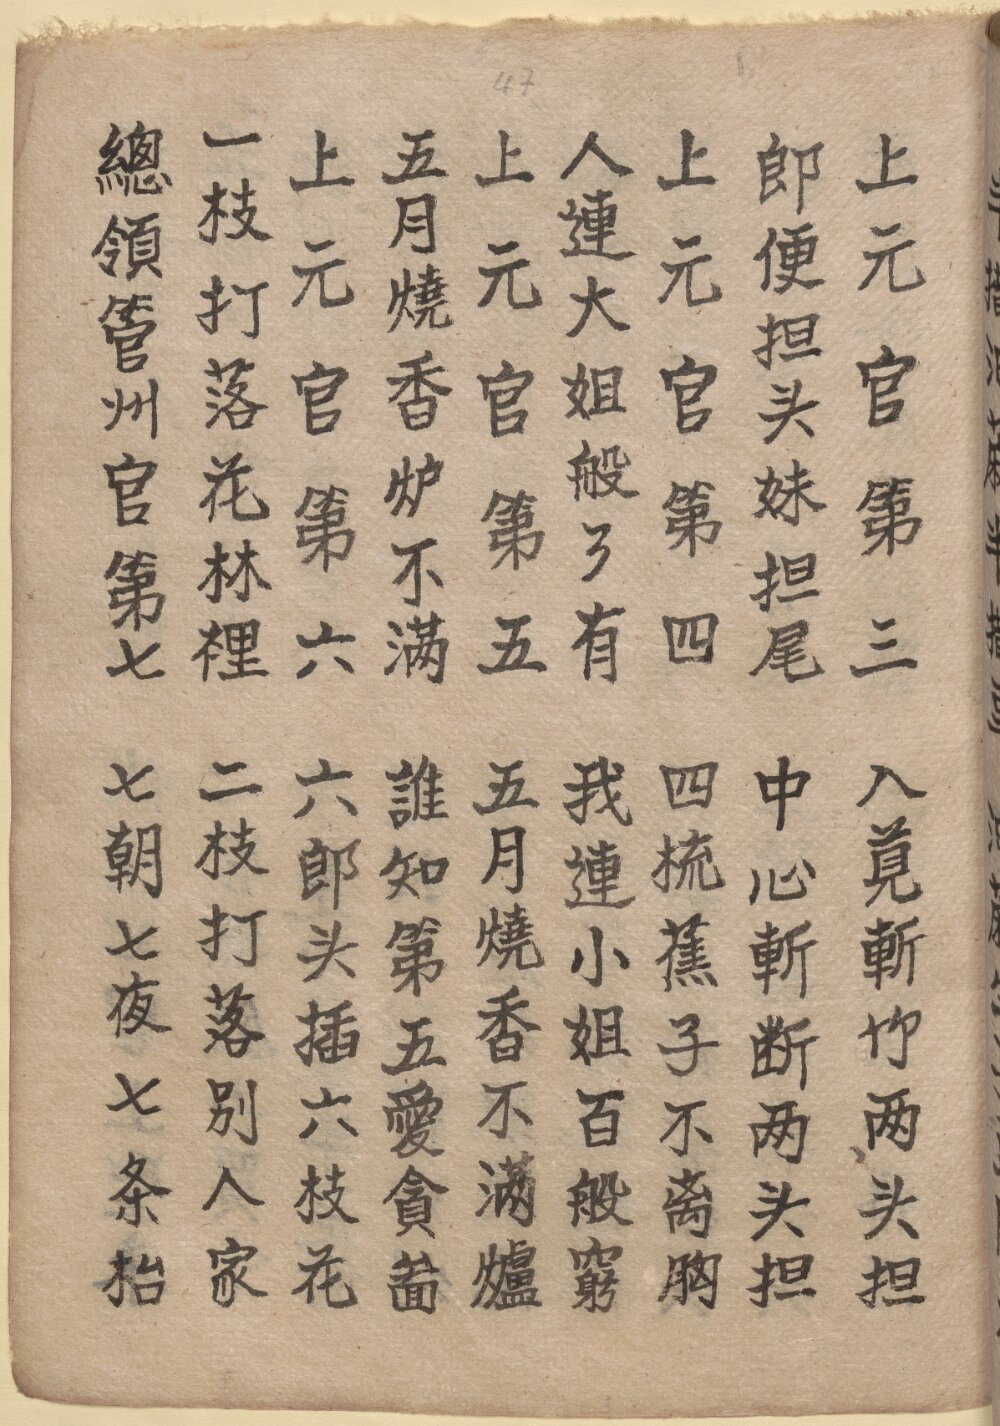 上元官第三　入莧斬竹两头担
郎便担头妹担尾　中心斬断两头担
上元官第四　四梳蕉子不离胸
人連大姐般〻有　我連小姐百般窮
上元官第五　五月燒香不滿爐
五月燒香炉不满　誰知第五愛貪啚
上元官第六　六郎头插六枝花
一枝打落花林裡　二枝打落别人家
總領管州官第七　七朝七夜七条枱
47